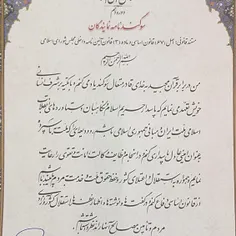 دوره دهم
سوگندنامه نمایندگان
مستند قانونی: اصل (۶۷) قانون اساسی و ماده (۱۳) قانون آیین نامه داخلی مجلس شورای اسلامی
بسم الله الرحمن الرحیم
من در برابر قرآن مجید، به خدای قادر متعال سوگند یاد می کنم و با تکیه بر شرف انسانی
خویش تعهد می نمایم که پاسدار حریم اسلام و نگاهبان دستاوردهای انقلاب
اسلامی ملت ایران و مبانی جمهوری اسلامی باشم، ودیعه ای را که ملت به ما سپرده
به عنوان امینی عادل پاسداری کنم و در انجام وظایف وکالت، امانت و تقوی را رعایت
نمایم و همواره به استقلال و اعتلای کشور و حفظ حقوق ملت و خدمت به مردم پایبند باشم
از قانون اساسی دفاع کنم و در گفته ها و نوشته ها و اظهارنظرها، استقلال کشور و آزادی
مردم و تأمین مصالح آنها را مدنظر داشته باشم